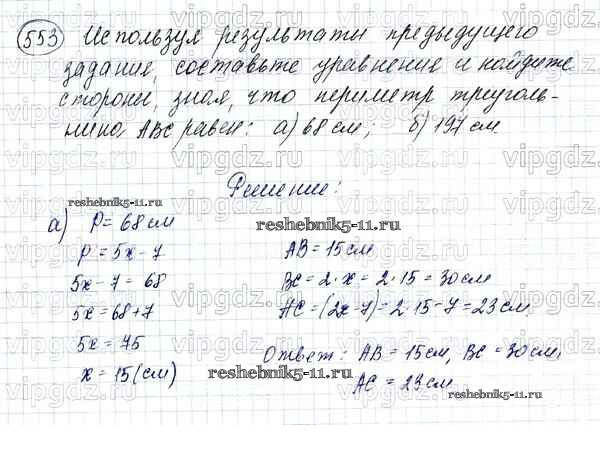 553 Используя результаты предыдущего
задания, составьте уравнение и найдите
стороны, зная, что периметр треуголь-
ника ABC равен: а) 68 см; б) 197 см
Решение:
reshebnik5-11.ru
а) P = 68 см
reshebnik5-11.ru
P = 5x - 7
5x - 7 = 68
5x = 68 + 7
5x = 75
x = 15 (см)
AB = 15 см
BC = 2 · x = 2 · 15 = 30 см
AC = (2x - 7) = 2 · 15 - 7 = 23 см
Ответ: AB = 15 см, BC = 30 см,
AC = 23 см
reshebnik5-11.ru
reshebnik5-11.ru
vipgdz.ru